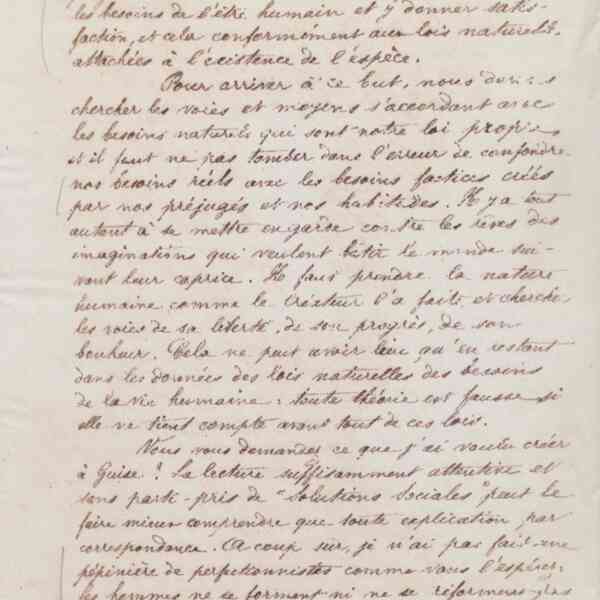 les besoins de l'être humain et y donner satis-
faction, et cela conformément aux lois naturelles
attachées à l'existence de l'espèce.
Pour arriver à ce but, nous devons
chercher les voies et moyens s'accordant avec
les besoins naturels qui sont notre loi propre
et il faut ne pas tomber dans l'erreur de confondre
nos besoins réels avec les besoins factices créés
par nos préjugés et nos habitudes. Il y a tout
autant à se mettre en garde contre les rêves des
imaginations qui veulent bâtir le monde sui-
vant leur caprice. Il faut prendre la nature
humaine comme le Créateur l'a faite et chercher
les voies de sa liberté, de son progrès, de son
bonheur. Cela ne peut avoir lieu qu'en restant
dans les données des lois naturelles des besoins
de la vie humaine ; toute théorie est fausse si
elle ne tient compte avant tout de ces lois.
Vous vous demandez ce que j'ai voulu créer
à Guise ! La lecture suffisamment attentive et
sans parti-pris de "Solutions Sociales" peut le
faire mieux comprendre que toute explication par
correspondance. A coup sur, je n'ai pas fait une
pépinière de perfectionnistes comme vous l'espériez
les hommes ne se forment ni ne se réforment pas